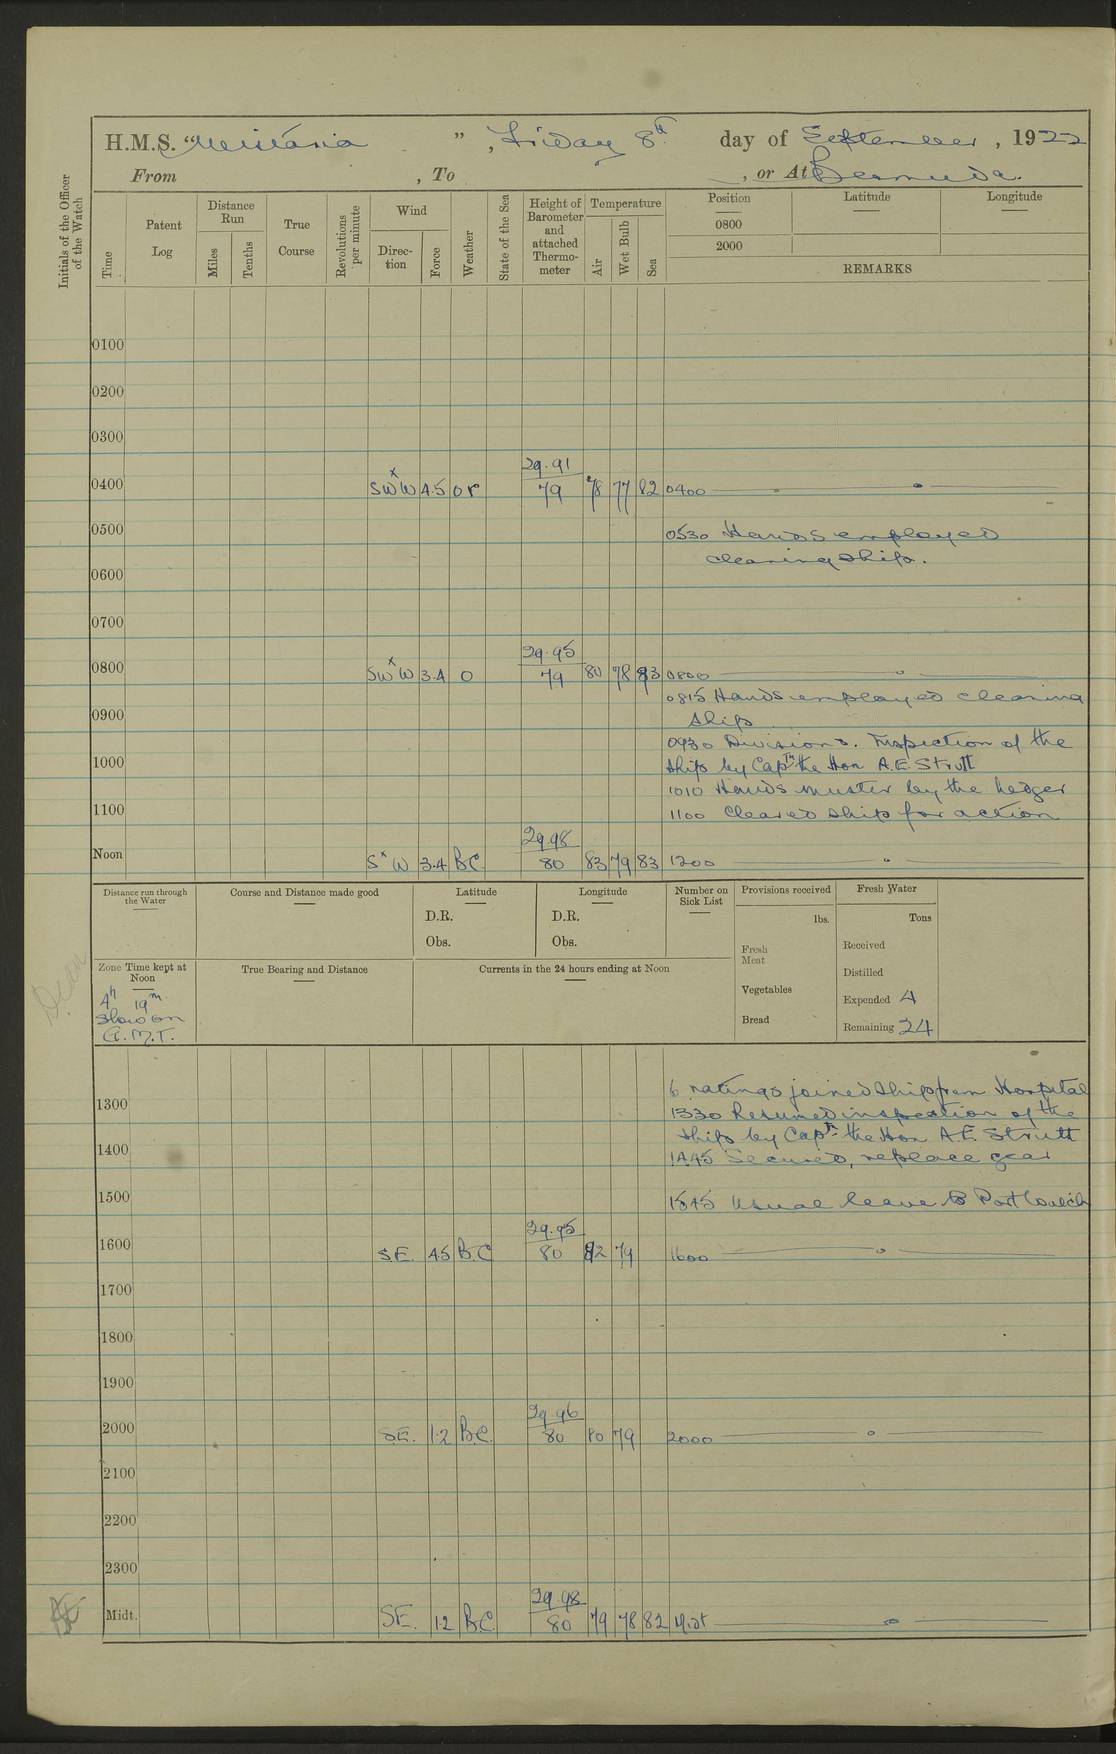 H.M.S. " ", Friday 8th day of September, 1922
From , To , or At Bermuda.
Initials of the Officer of the Watch
Time
Patent Log
Distance Run
Miles
Tenths
True Course
Revolutions per minute
Wind
Direction
Force
Weather
State of the Sea
Height of Barometer and attached Thermometer
Temperature
Air
Wet Bulb
Sea
Position
Latitude
Longitude
0800
2000
REMARKS
0100
0200
0300
0400 SWxW 4.5 or 29.91 79 78 77 82 0400
0500 0530 Hands employed
cleaning ship.
0600
0700
0800 SWxW 3.4 O 29.95 79 80 78 83 0800
0815 Hands employed cleaning
0900 ship
0930 Divisions. Inspection of the
1000 ship by Captn the Hon A.E. Strutt
1010 Hands muster by the ledger
1100 1100 Cleared ship for action
Noon SxW 3.4 BC 29.98 80 83 79 83 1200
Distance run through the Water
Course and Distance made good
Latitude
D.R.
Obs.
Longitude
D.R.
Obs.
Number on Sick List
Provisions received
lbs.
Fresh Meat
Vegetables
Bread
Fresh Water
Tons
Received
Distilled
Expended 4
Remaining 24
Zone Time kept at Noon
4h 19m
slow on
G.M.T.
True Bearing and Distance
Currents in the 24 hours ending at Noon
6 ratings joined ship from Hospital
1300 1330 Resumed inspection of the
ship by Captn the Hon A.E. Strutt
1400 1445 Secured, replace gear
1500 1545 Usual leave to Port Watch
1600 S.E. 4.5 B.C 29.95 80 82 79 1600
1700
1800
1900
2000 S.E. 1.2 B.C. 29.96 80 80 79 2000
2100
2200
2300
Midt. S.E. 1.2 B.C. 29.98 80 79 78 82 Midt